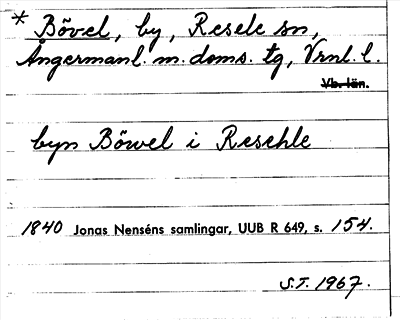 * Bövel, by, Resele sn,
Ångermanl. m. doms. tg, Vrnl. l.
Vb. län.
byn Böwel i Resehle
1840 Jonas Nenséns samlingar, UUB R 649, s. 154.
S.T. 1967.